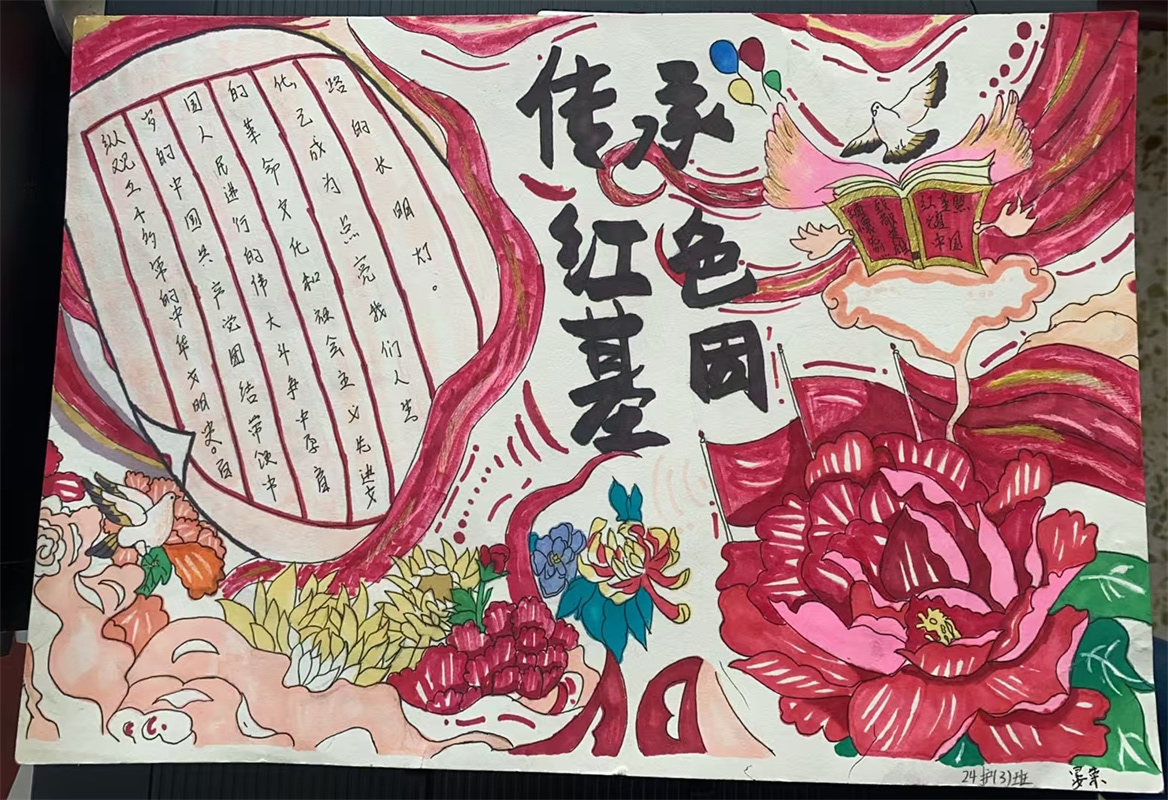 传承
红色
基因
纵观五千多年的中华文明史。百
岁的中国共产党团结带领中
国人民进行的伟大斗争中孕育
的革命文化和社会主义先进文
化,已成为点亮我们人生
路的长明灯。
红星照
耀
中国
24护(3)班